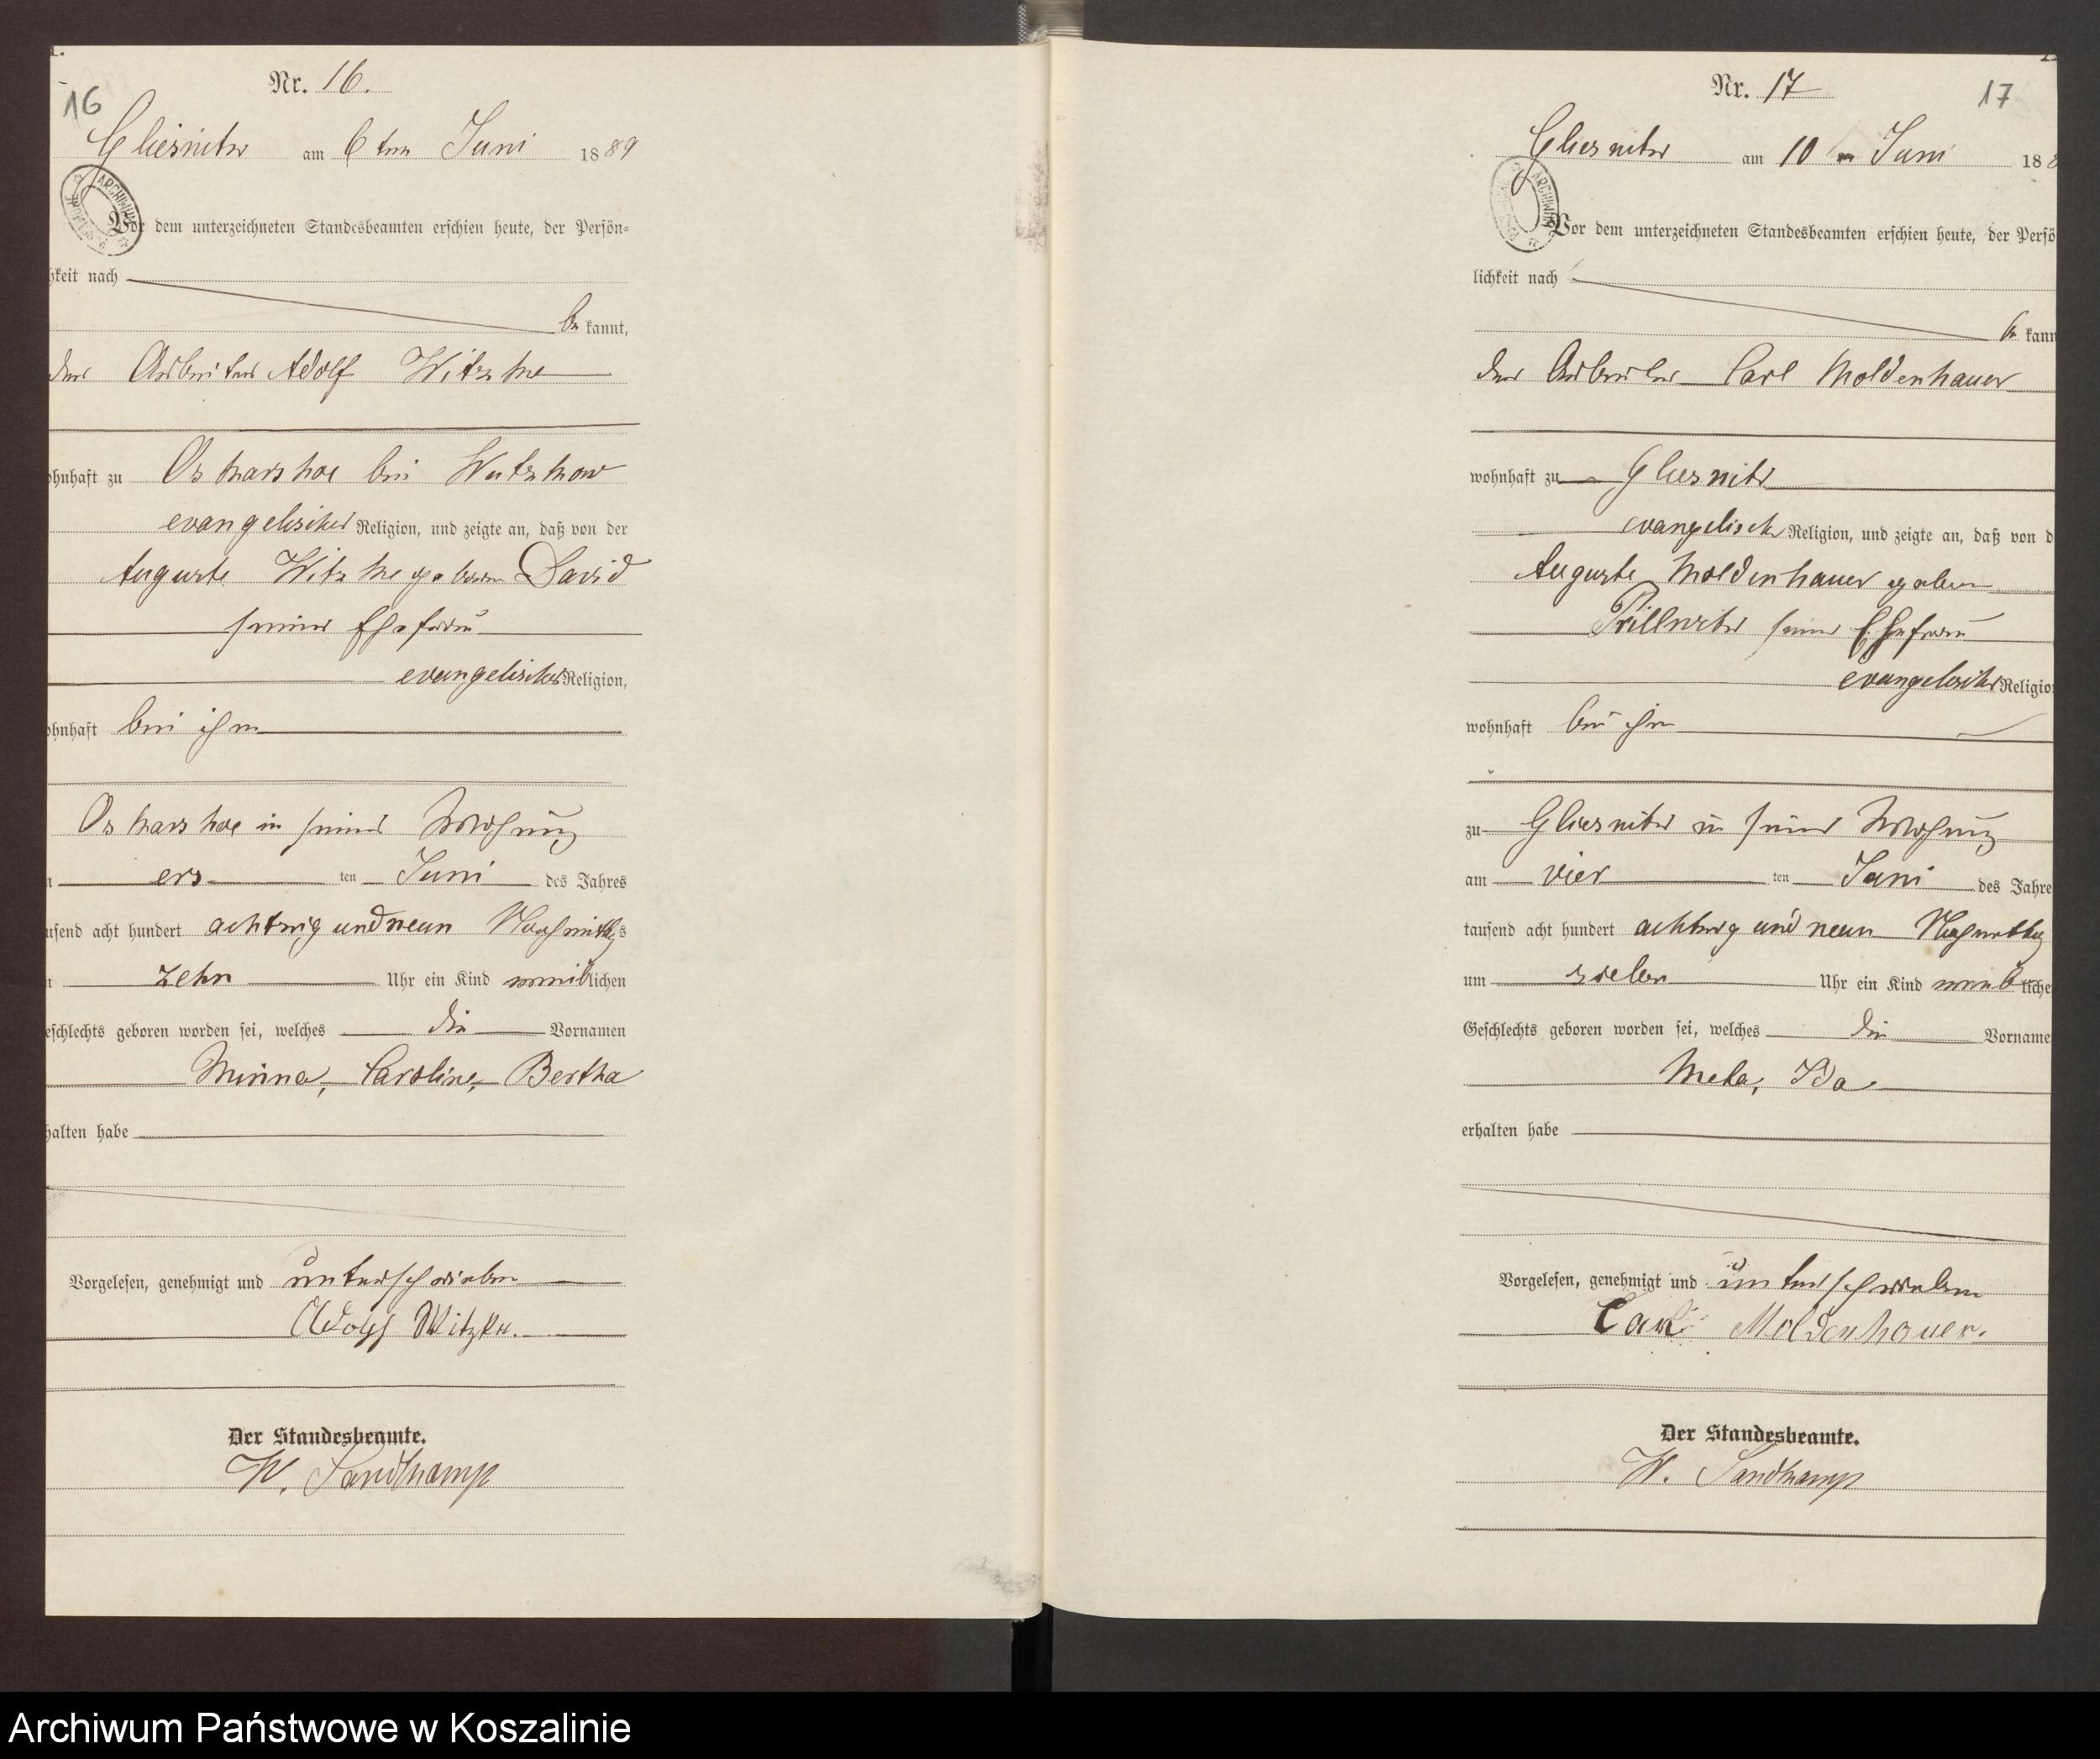 Nr. 16.
16
Gliesnitz am 6ten Juni 1889
Vor dem unterzeichneten Standesbeamten erschien heute, der Persön-
hkeit nach
be kannt,
der Arbeiter Adolf Witzke
ohnhaft zu Oskarshoe bei Wutzkow
evangelischer Religion, und zeigte an, daß von der
Auguste Witzke geboren David
seiner Ehefrau
evangelischer Religion,
ohnhaft bei ihm
Oskarshoe in seiner Wohnung
ers ten Juni des Jahres
usend acht hundert achtzig und neun Nachmittags
zehn Uhr ein Kind weiblichen
eschlechts geboren worden sei, welches die Vornamen
Minna, Caroline, Bertha
halten habe
Vorgelesen, genehmigt und unterschrieben
Adolf Witzke.
Der Standesbeamte.
W. Sandkamp
Nr. 17
17
Gliesnitz am 10 Juni 188
Vor dem unterzeichneten Standesbeamten erschien heute, der Persö
lichkeit nach
be kann
der Arbeiter Carl Moldenhauer
wohnhaft zu Gliesnitz
evangelisch Religion, und zeigte an, daß von d
Auguste Moldenhauer geboren
Prillwitz seiner Ehefrau
evangelischer Religio
wohnhaft bei ihm
zu Gliesnitz in seiner Wohnung
am vier ten Juni des Jahre
tausend acht hundert achtzig und neun Nachmittag
um sieben Uhr ein Kind weibliche
Geschlechts geboren worden sei, welches die Vorname
Meta, Ida
erhalten habe
Vorgelesen, genehmigt und unterschrieben
Carl Moldenhauer.
Der Standesbeamte.
W. Sandkamp
Archiwum Państwowe w Koszalinie